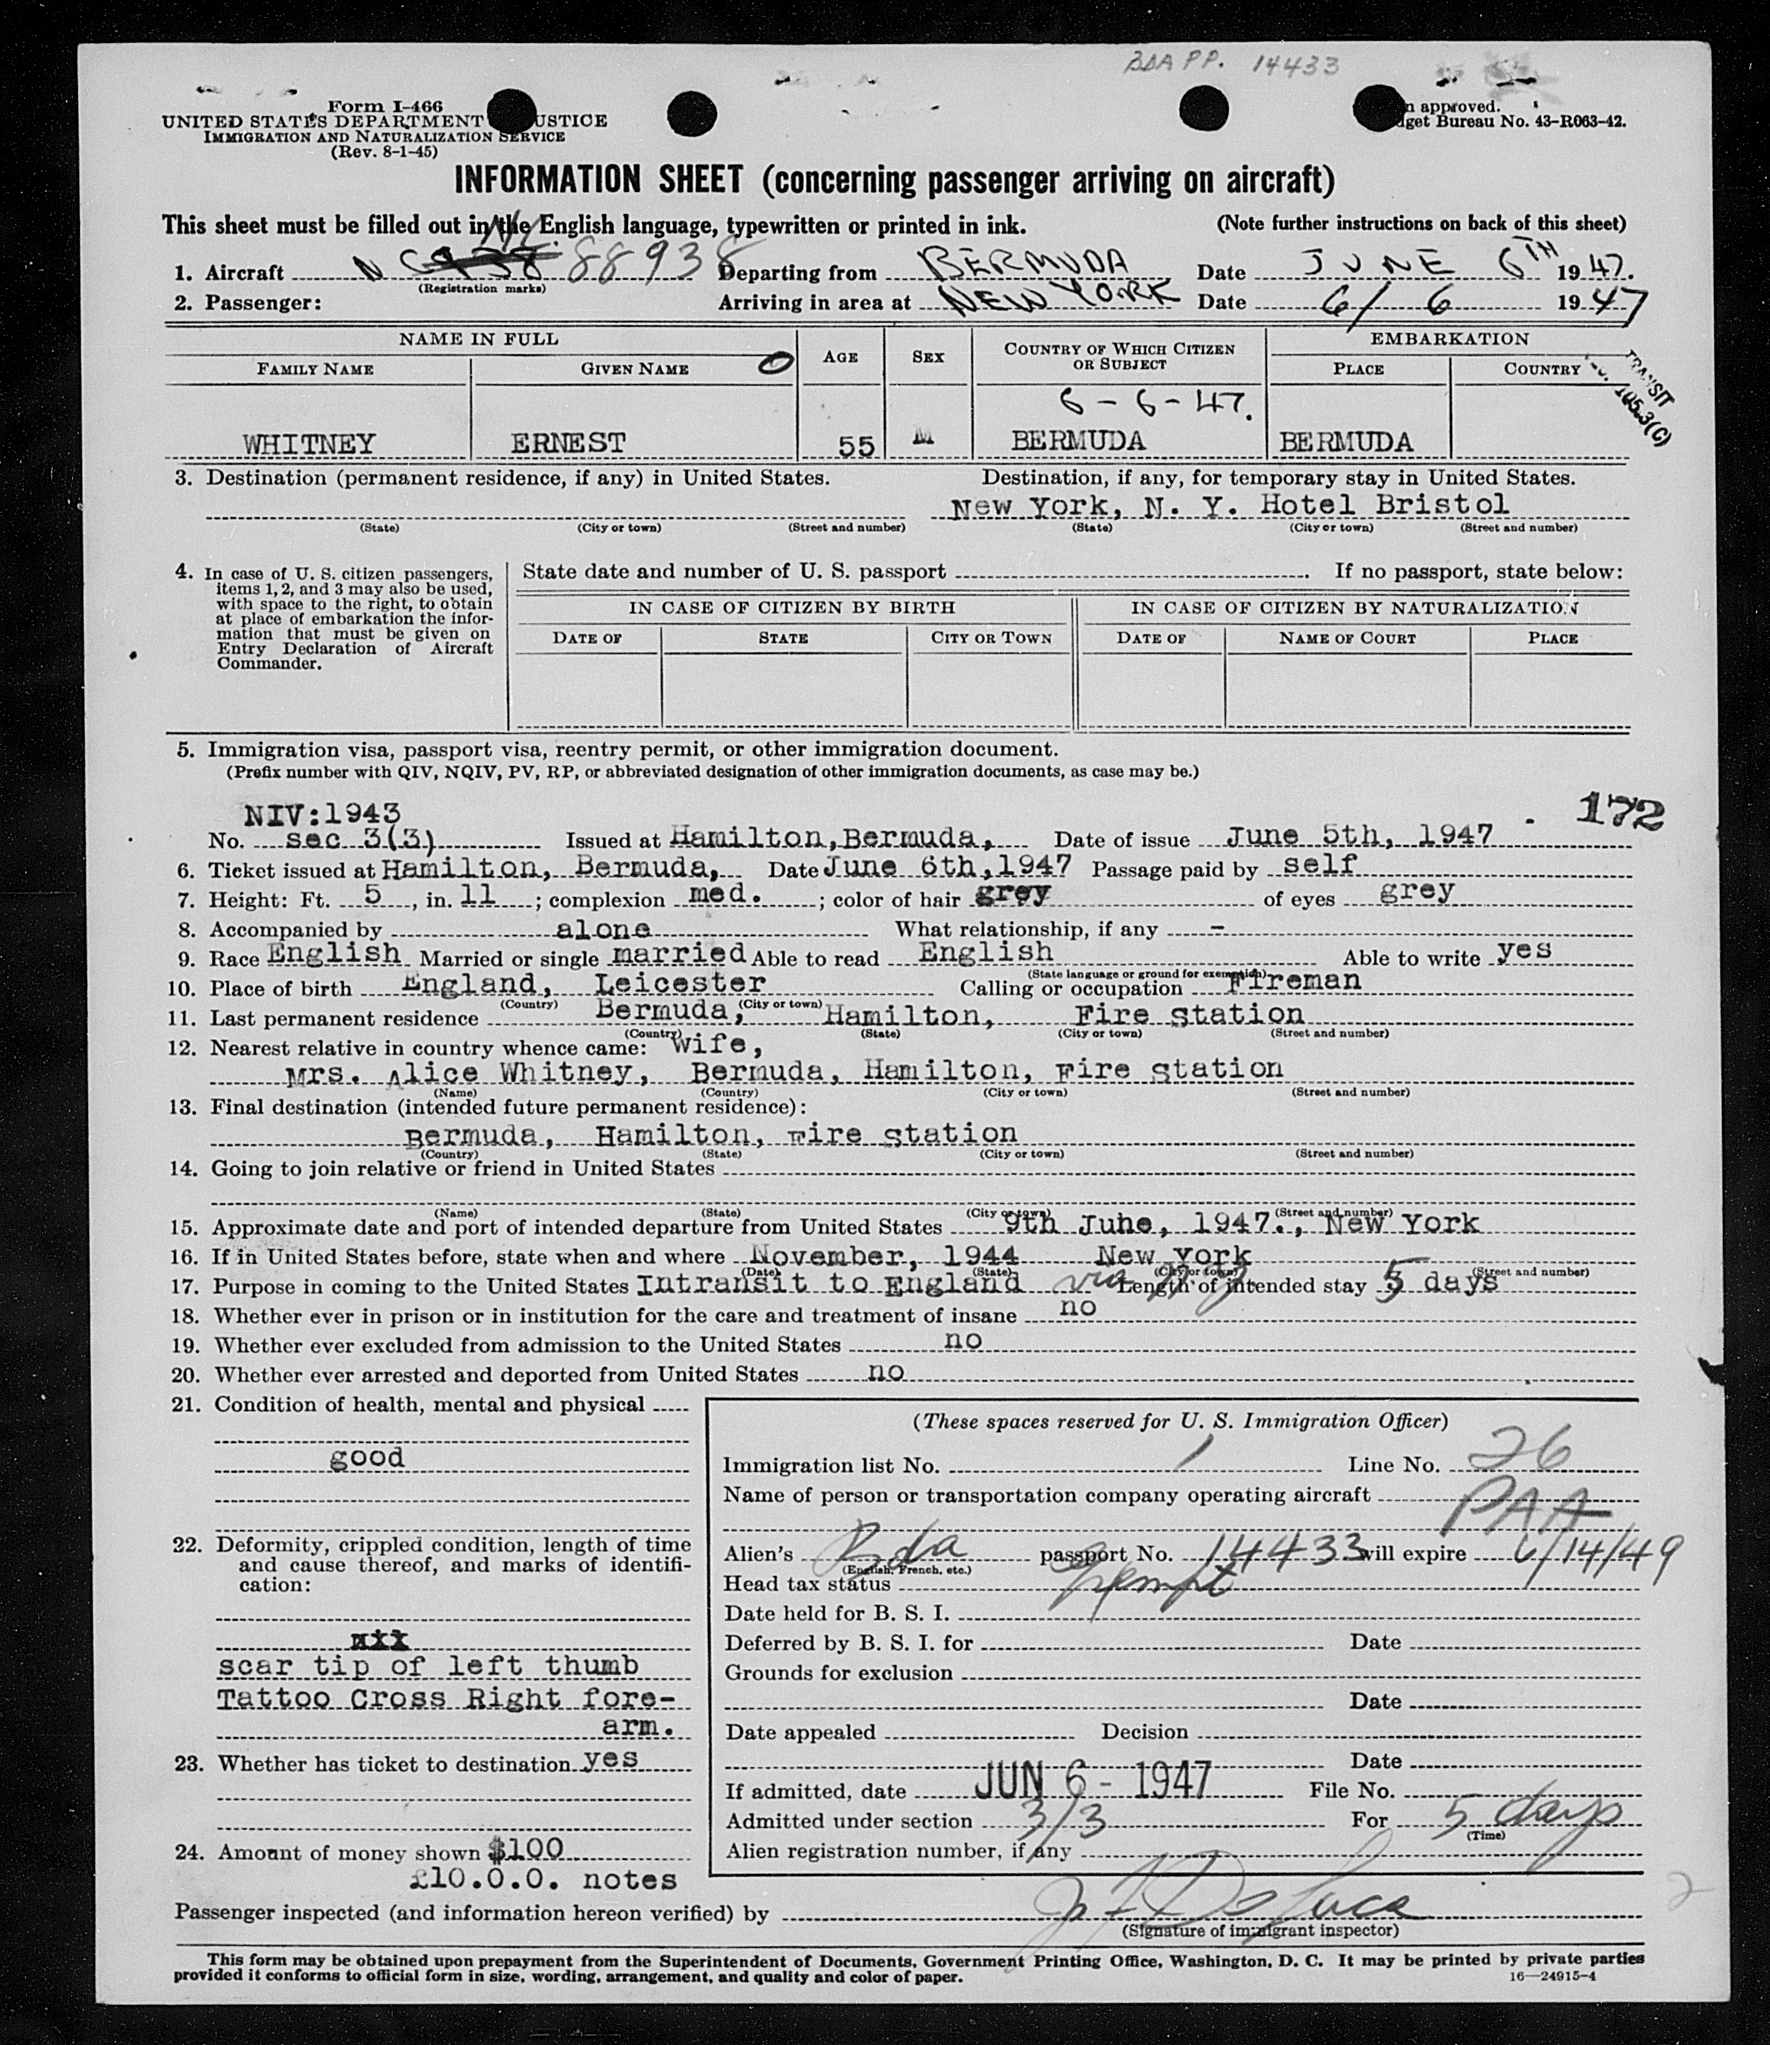 BDA PP. 14433
Form I-466
UNITED STATES DEPARTMENT USTICE
IMMIGRATION AND NATURALIZATION SERVICE
(Rev. 8-1-45)
n approved.
get Bureau No. 43-R063-42.
INFORMATION SHEET (concerning passenger arriving on aircraft)
This sheet must be filled out in the English language, typewritten or printed in ink.
(Note further instructions on back of this sheet)
1. Aircraft N C 88938 Departing from BERMUDA Date JUNE 6TH 1947.
(Registration marks)
2. Passenger: Arriving in area at NEW YORK Date 6/6 1947
NAME IN FULL AGE SEX COUNTRY OF WHICH CITIZEN OR SUBJECT EMBARKATION
FAMILY NAME GIVEN NAME PLACE COUNTRY
TRANSIT
105.3(C)
6-6-47.
WHITNEY ERNEST 55 M BERMUDA BERMUDA
3. Destination (permanent residence, if any) in United States. Destination, if any, for temporary stay in United States.
New York, N. Y. Hotel Bristol
(State) (City or town) (Street and number) (State) (City or town) (Street and number)
4. In case of U. S. citizen passengers, items 1, 2, and 3 may also be used, with space to the right, to obtain at place of embarkation the information that must be given on Entry Declaration of Aircraft Commander.
State date and number of U. S. passport . If no passport, state below:
IN CASE OF CITIZEN BY BIRTH IN CASE OF CITIZEN BY NATURALIZATION
DATE OF STATE CITY OR TOWN DATE OF NAME OF COURT PLACE
5. Immigration visa, passport visa, reentry permit, or other immigration document.
(Prefix number with QIV, NQIV, PV, RP, or abbreviated designation of other immigration documents, as case may be.)
NIV:1943 172
No. sec 3(3) Issued at Hamilton, Bermuda, Date of issue June 5th, 1947
6. Ticket issued at Hamilton, Bermuda, Date June 6th, 1947 Passage paid by self
7. Height: Ft. 5, in. 11; complexion med.; color of hair grey of eyes grey
8. Accompanied by alone What relationship, if any -
9. Race English Married or single married Able to read English Able to write yes
(State language or ground for exemption)
10. Place of birth England, Leicester Calling or occupation Fireman
(Country) (City or town)
11. Last permanent residence Bermuda, Hamilton, Fire station
(Country) (State) (City or town) (Street and number)
12. Nearest relative in country whence came: Wife,
Mrs. Alice Whitney, Bermuda, Hamilton, Fire station
(Name) (Country) (City or town) (Street and number)
13. Final destination (intended future permanent residence):
Bermuda, Hamilton, Fire station
(Country) (State) (City or town) (Street and number)
14. Going to join relative or friend in United States
(Name) (State) (City or town) (Street and number)
15. Approximate date and port of intended departure from United States 9th June, 1947., New York
16. If in United States before, state when and where November, 1944 New York
(Date) (State) (City or town) (Street and number)
17. Purpose in coming to the United States Intransit to England via N.Y. Length of intended stay 5 days
18. Whether ever in prison or in institution for the care and treatment of insane no
19. Whether ever excluded from admission to the United States no
20. Whether ever arrested and deported from United States no
21. Condition of health, mental and physical
good
22. Deformity, crippled condition, length of time and cause thereof, and marks of identification:
scar tip of left thumb
Tattoo Cross Right fore-
arm.
23. Whether has ticket to destination yes
24. Amount of money shown $100
£10.0.0. notes
(These spaces reserved for U. S. Immigration Officer)
Immigration list No. 1 Line No. 26
Name of person or transportation company operating aircraft PAA
Alien's Bda passport No. 14433 will expire 6/14/49
(English, French, etc.)
Head tax status Exempt
Date held for B. S. I.
Deferred by B. S. I. for Date
Grounds for exclusion
Date
Date appealed Decision
Date
If admitted, date JUN 6 - 1947 File No.
Admitted under section 3/3 For 5 days
(Time)
Alien registration number, if any
Passenger inspected (and information hereon verified) by J F De Luca
(Signature of immigrant inspector)
2
This form may be obtained upon prepayment from the Superintendent of Documents, Government Printing Office, Washington, D. C. It may be printed by private parties
provided it conforms to official form in size, wording, arrangement, and quality and color of paper.
16—24915-4